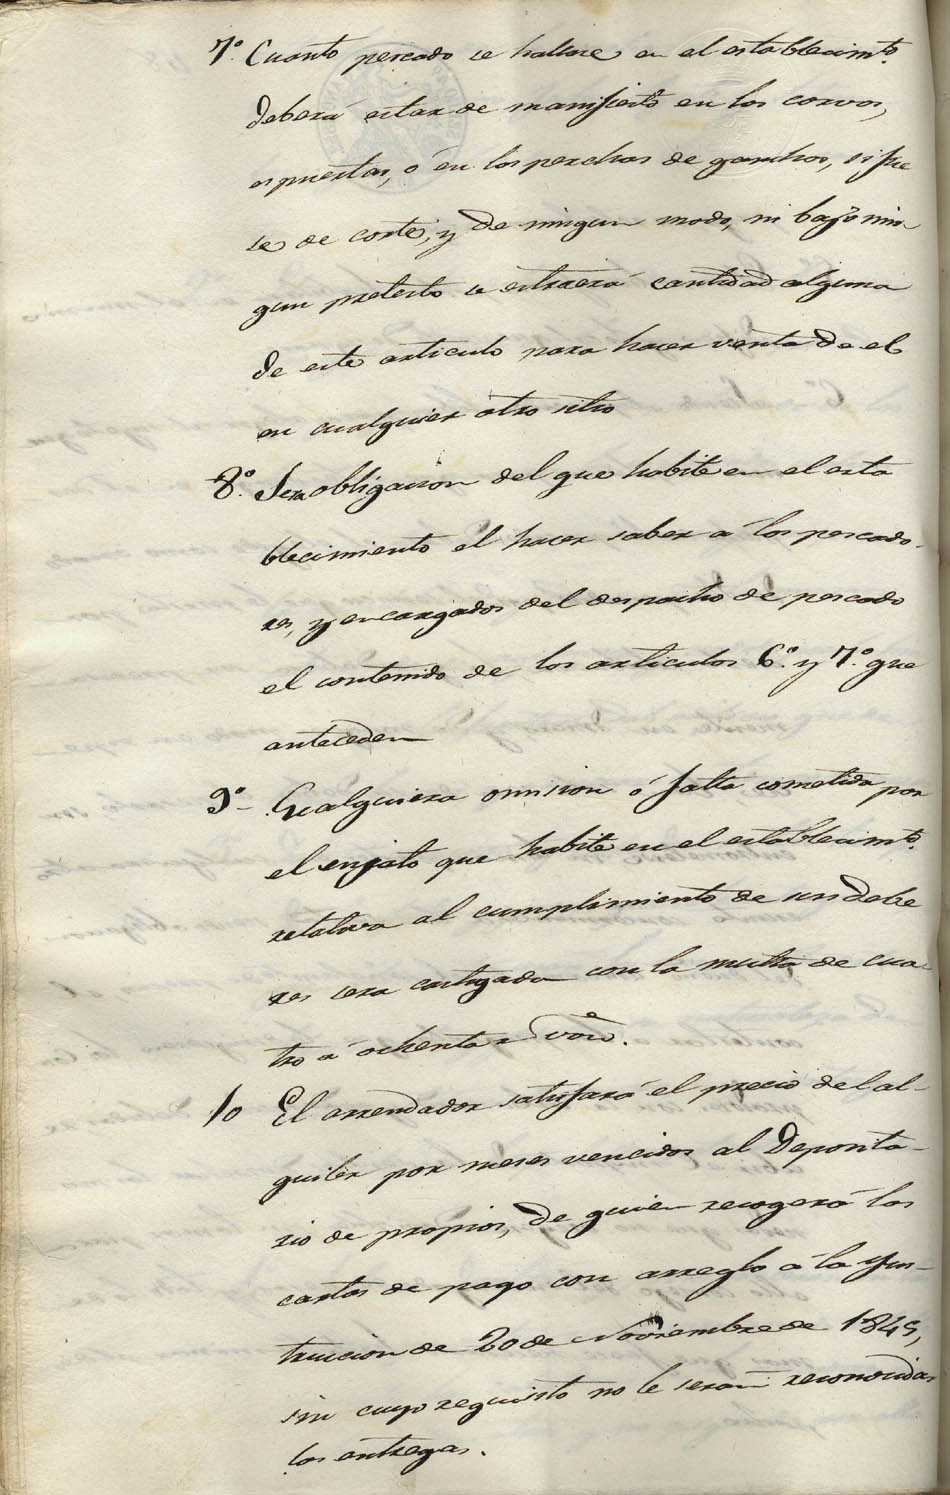 7º. Cuanto pescado se hallase en el establecimto.
deberá estar de manifiesto en los corvos,
espuertas, o en los perchas de ganchos, si fue
se de corte, y de ningun modo, ni bajo nin-
gun pretesto se estraerá cantidad alguna
de este articulo para hacer venta de el
en cualquier otro sitio
8º. Sera obligacion del que habite en el esta
blecimiento el hacer saber a los pescado-
res, y encargados del despacho de pescado
el contenido de los articulos 6º. y 7º. que
anteceden
9º- Cualquiera omision ó falta cometida por
el sujeto que habite en el establecimto.
relativa al cumplimiento de sus debe
res sera castigada con la multa de cua-
tro a ochenta rs. von.
10 El arrendador satisfará el precio del al-
quiler por meses vencidos al Deposita-
rio de propios, de quien recogerá las
cartas de pago con arreglo á la Yns-
truccion de 20 de Noviembre de 1845,
sin cuyo requisito no le seran reconocidas
las entregas.